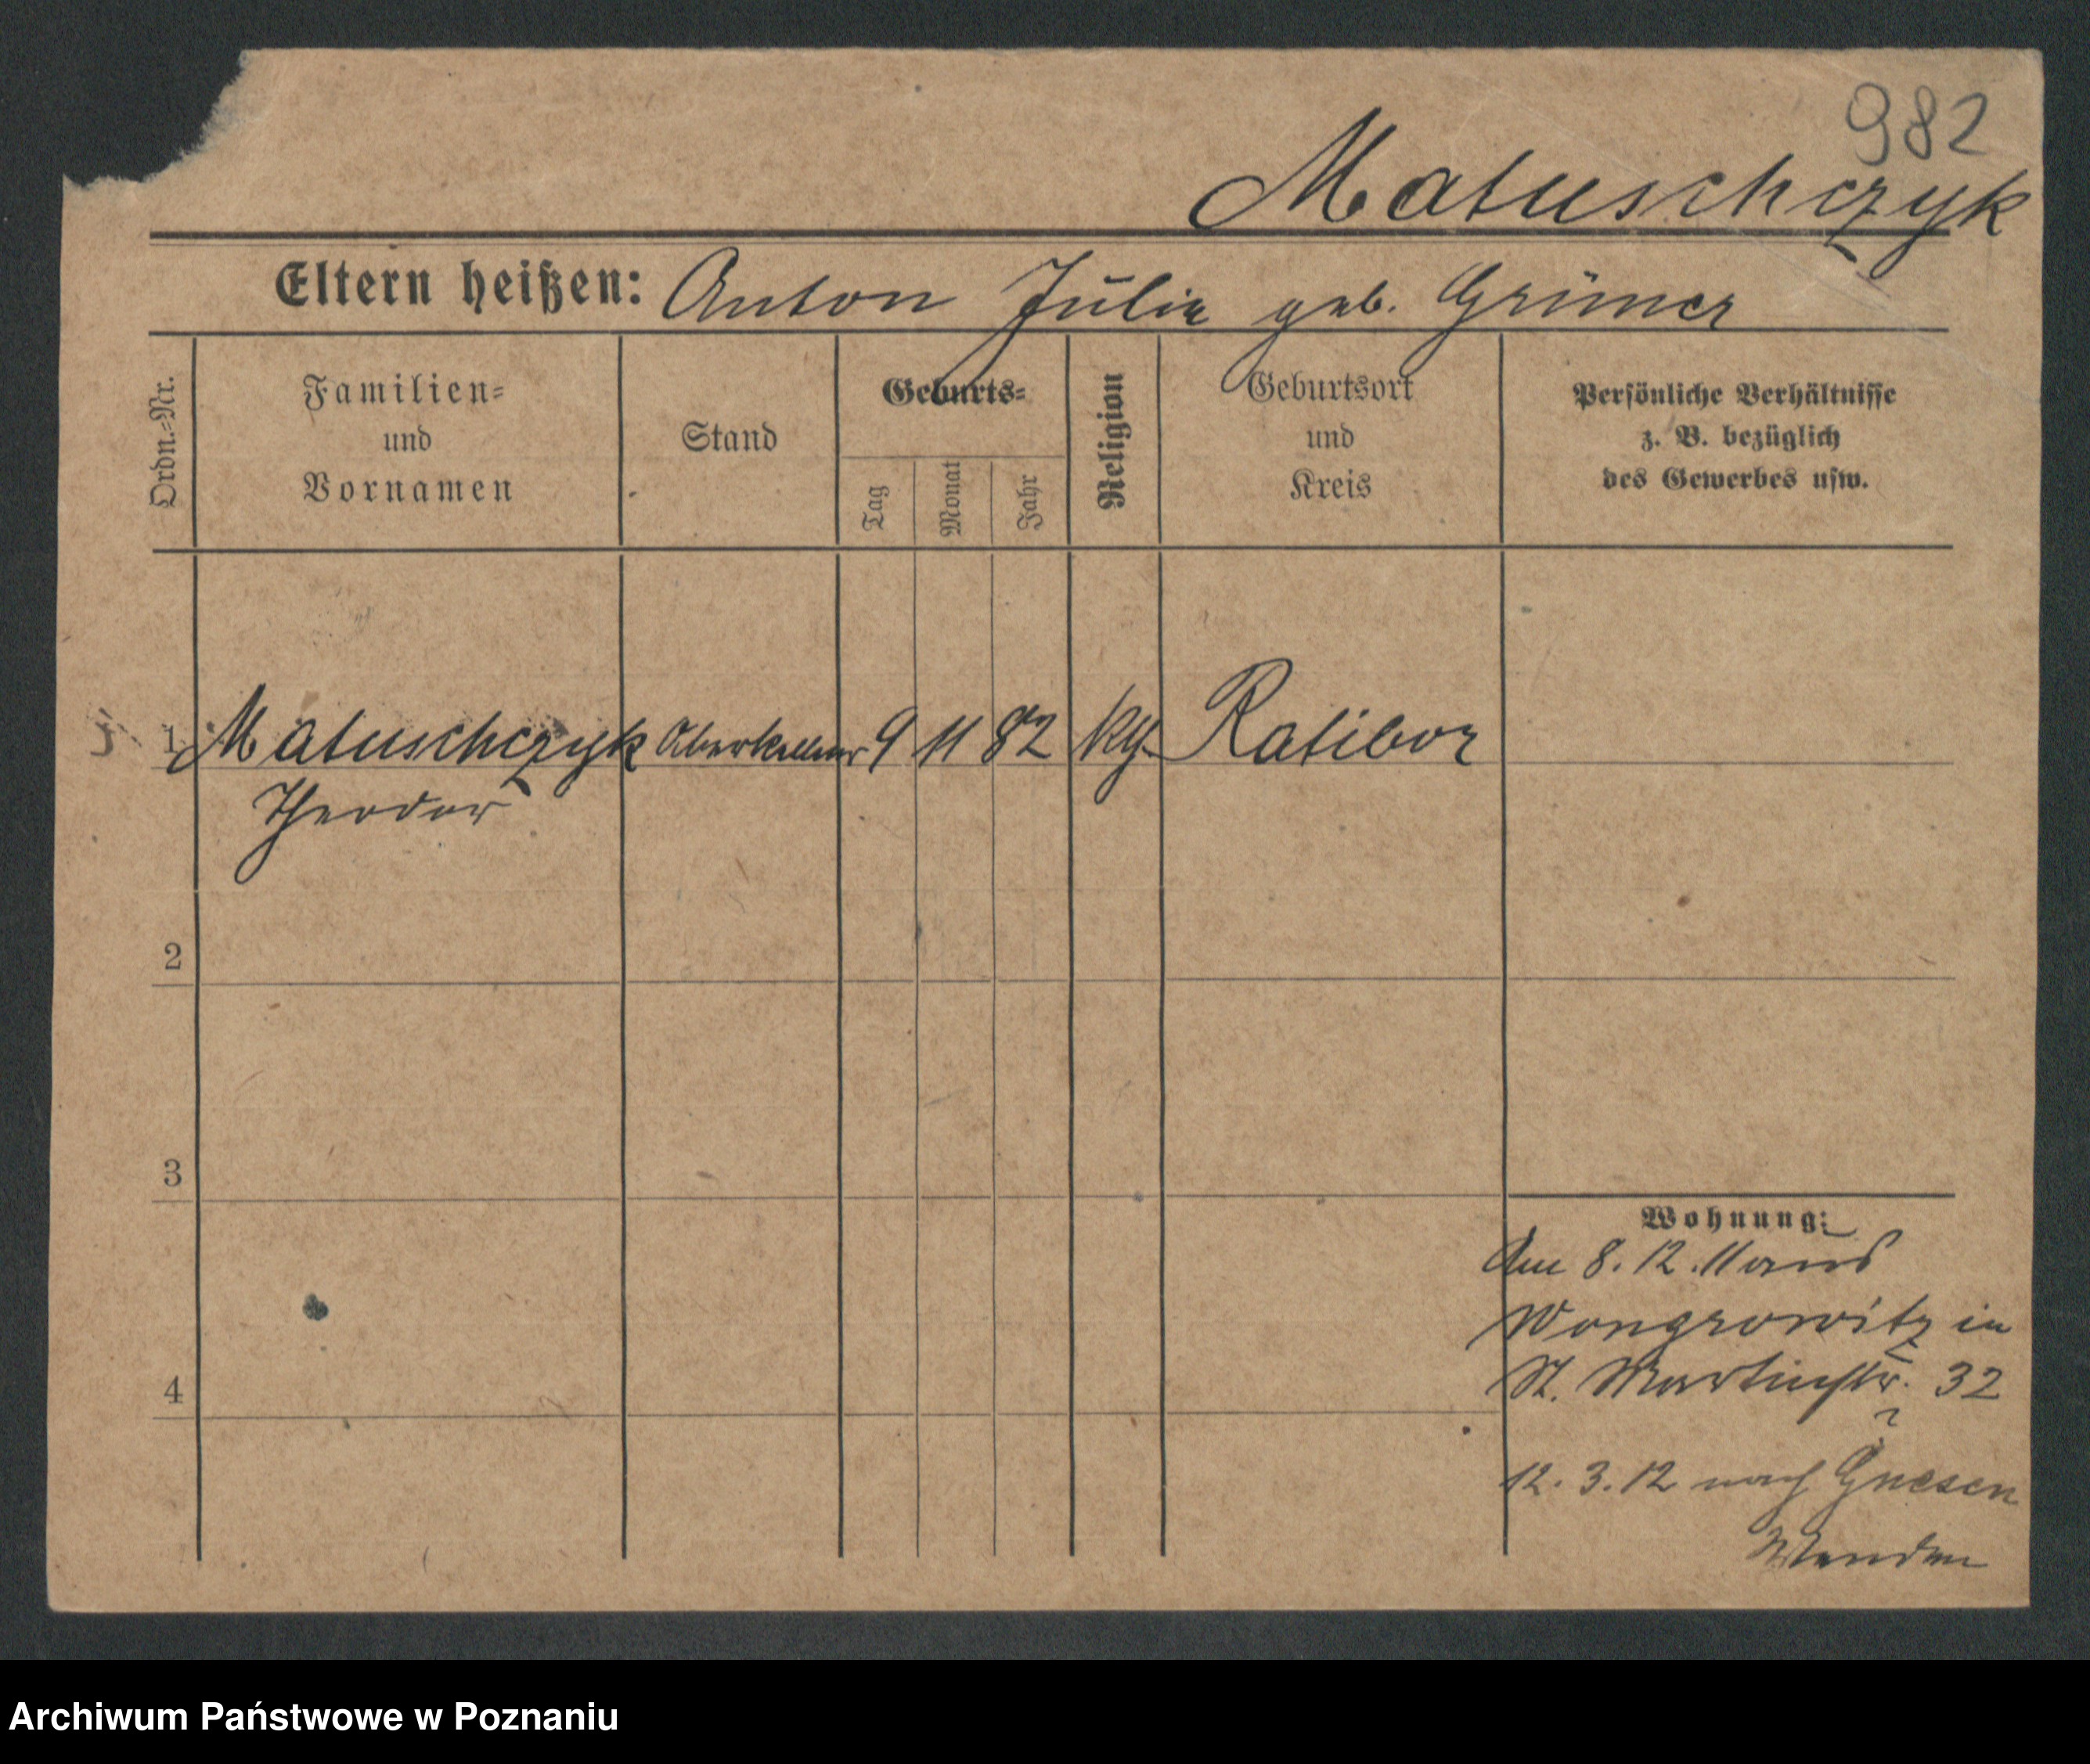 982
Matuschczyk
Eltern heißen: Anton Julie geb. Grüner
Ordn.-Nr.
Familien-
und
Vornamen
Stand
Geburts-
Tag
Monat
Jahr
Religion
Geburtsort
und
Kreis
Persönliche Verhältnisse
z. B. bezüglich
des Gewerbes usw.
1 Matuschczyk Oberkellner 9 11 82 kth Ratibor
Theodor
2
3
4
Wohnung:
Am 8. 12. 11 aus
Wongrowitz in
St. Martinstr. 32
12. 3. 12 nach Gnesen
Wenden
Archiwum Państwowe w Poznaniu